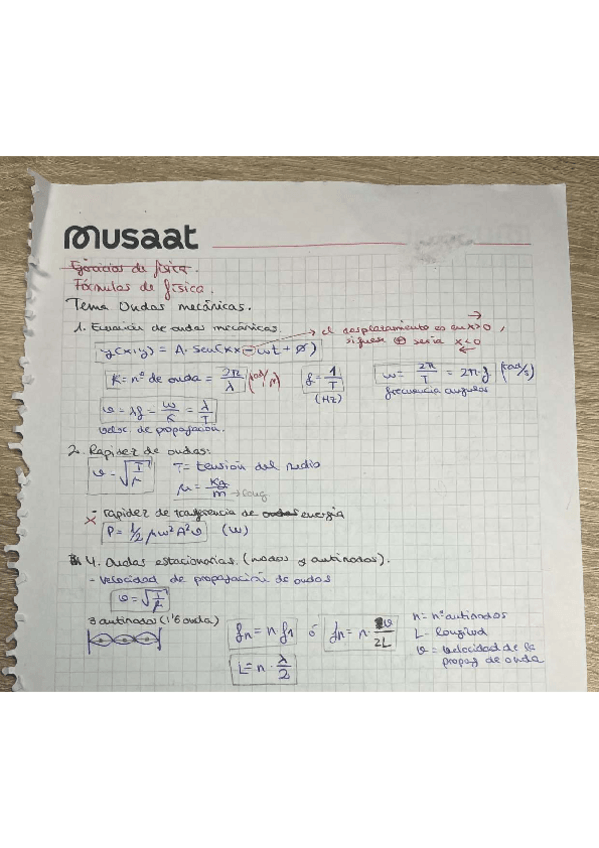 musaat
Ejercicios de física.
Fórmulas de física.
Tema Ondas mecánicas.
1. Ecuación de ondas mecánicas. → el desplazamiento es en x>0,
si fuese ⊕ sería x<0
y(x,y) = A · sen(kx - wt + Ø)
K = nº de onda = 2π/λ (rad/m) f = 1/T (Hz) w = 2π/T = 2π·f (rad/s)
frecuencia angular
v = λf = w/K = λ/T
veloc. de propagación.
2. Rapidez de ondas:
v = √(T/μ) T = tensión del medio
μ = Kg/m → long
- rapidez de transferencia de ondas energía
P = 1/2 μw²A²v (W)
4. Ondas estacionarias. (nodos y antinodos).
- velocidad de propagación de ondas
v = √(T/μ)
3 antinodos (1'5 onda) fn = n·f1 ó fn = n · v/2L n = nº antinodos
L = n · λ/2 L = longitud
v = velocidad de la
propag de onda